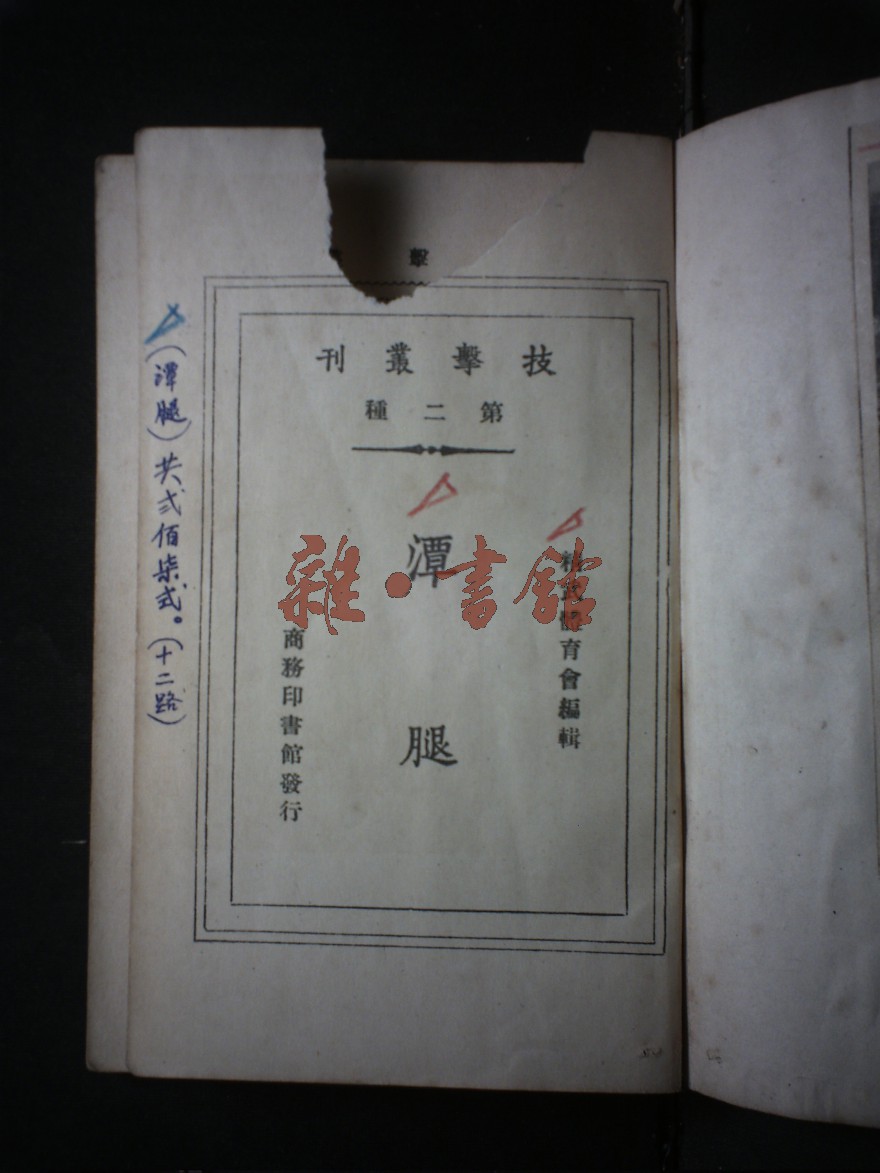 擊
技擊叢刊
第二種
精武體育會編輯
潭腿
商務印書館發行
(潭腿)共弍佰柒式。(十二路)
雜·書館